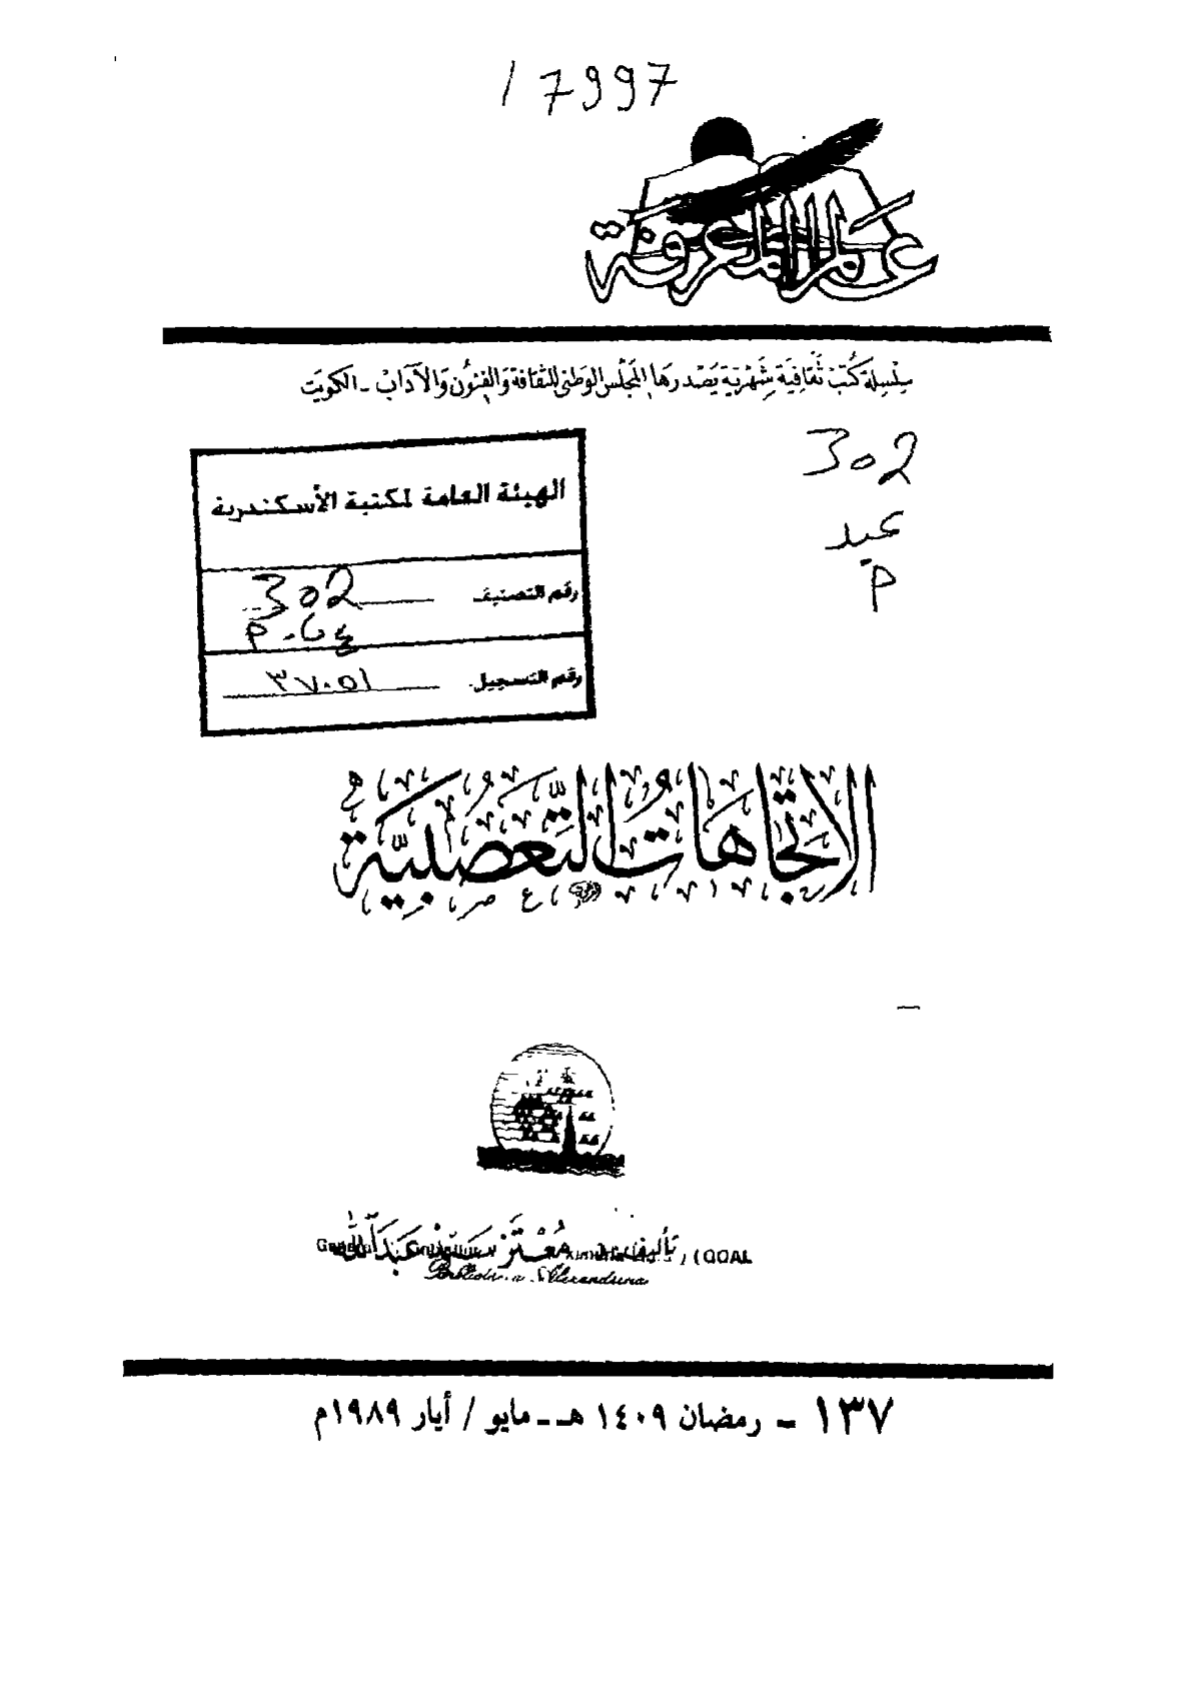 17997
عالم المعرفة
سلسلة كتب ثقافية شهرية يصدرها المجلس الوطني للثقافة والفنون والآداب - الكويت
302
عبد
م
الهيئة العامة لمكتبة الأسكندرية
رقم التصنيف 302
رقم التسجيل ٣٧٠٥١
الاتجاهات التعصبية
تأليف: د. معتز سيد عبدالله
(GOAL
Bibliotheca Alexandrina
١٣٧ - رمضان ١٤٠٩ هـ - مايو / أيار ١٩٨٩م